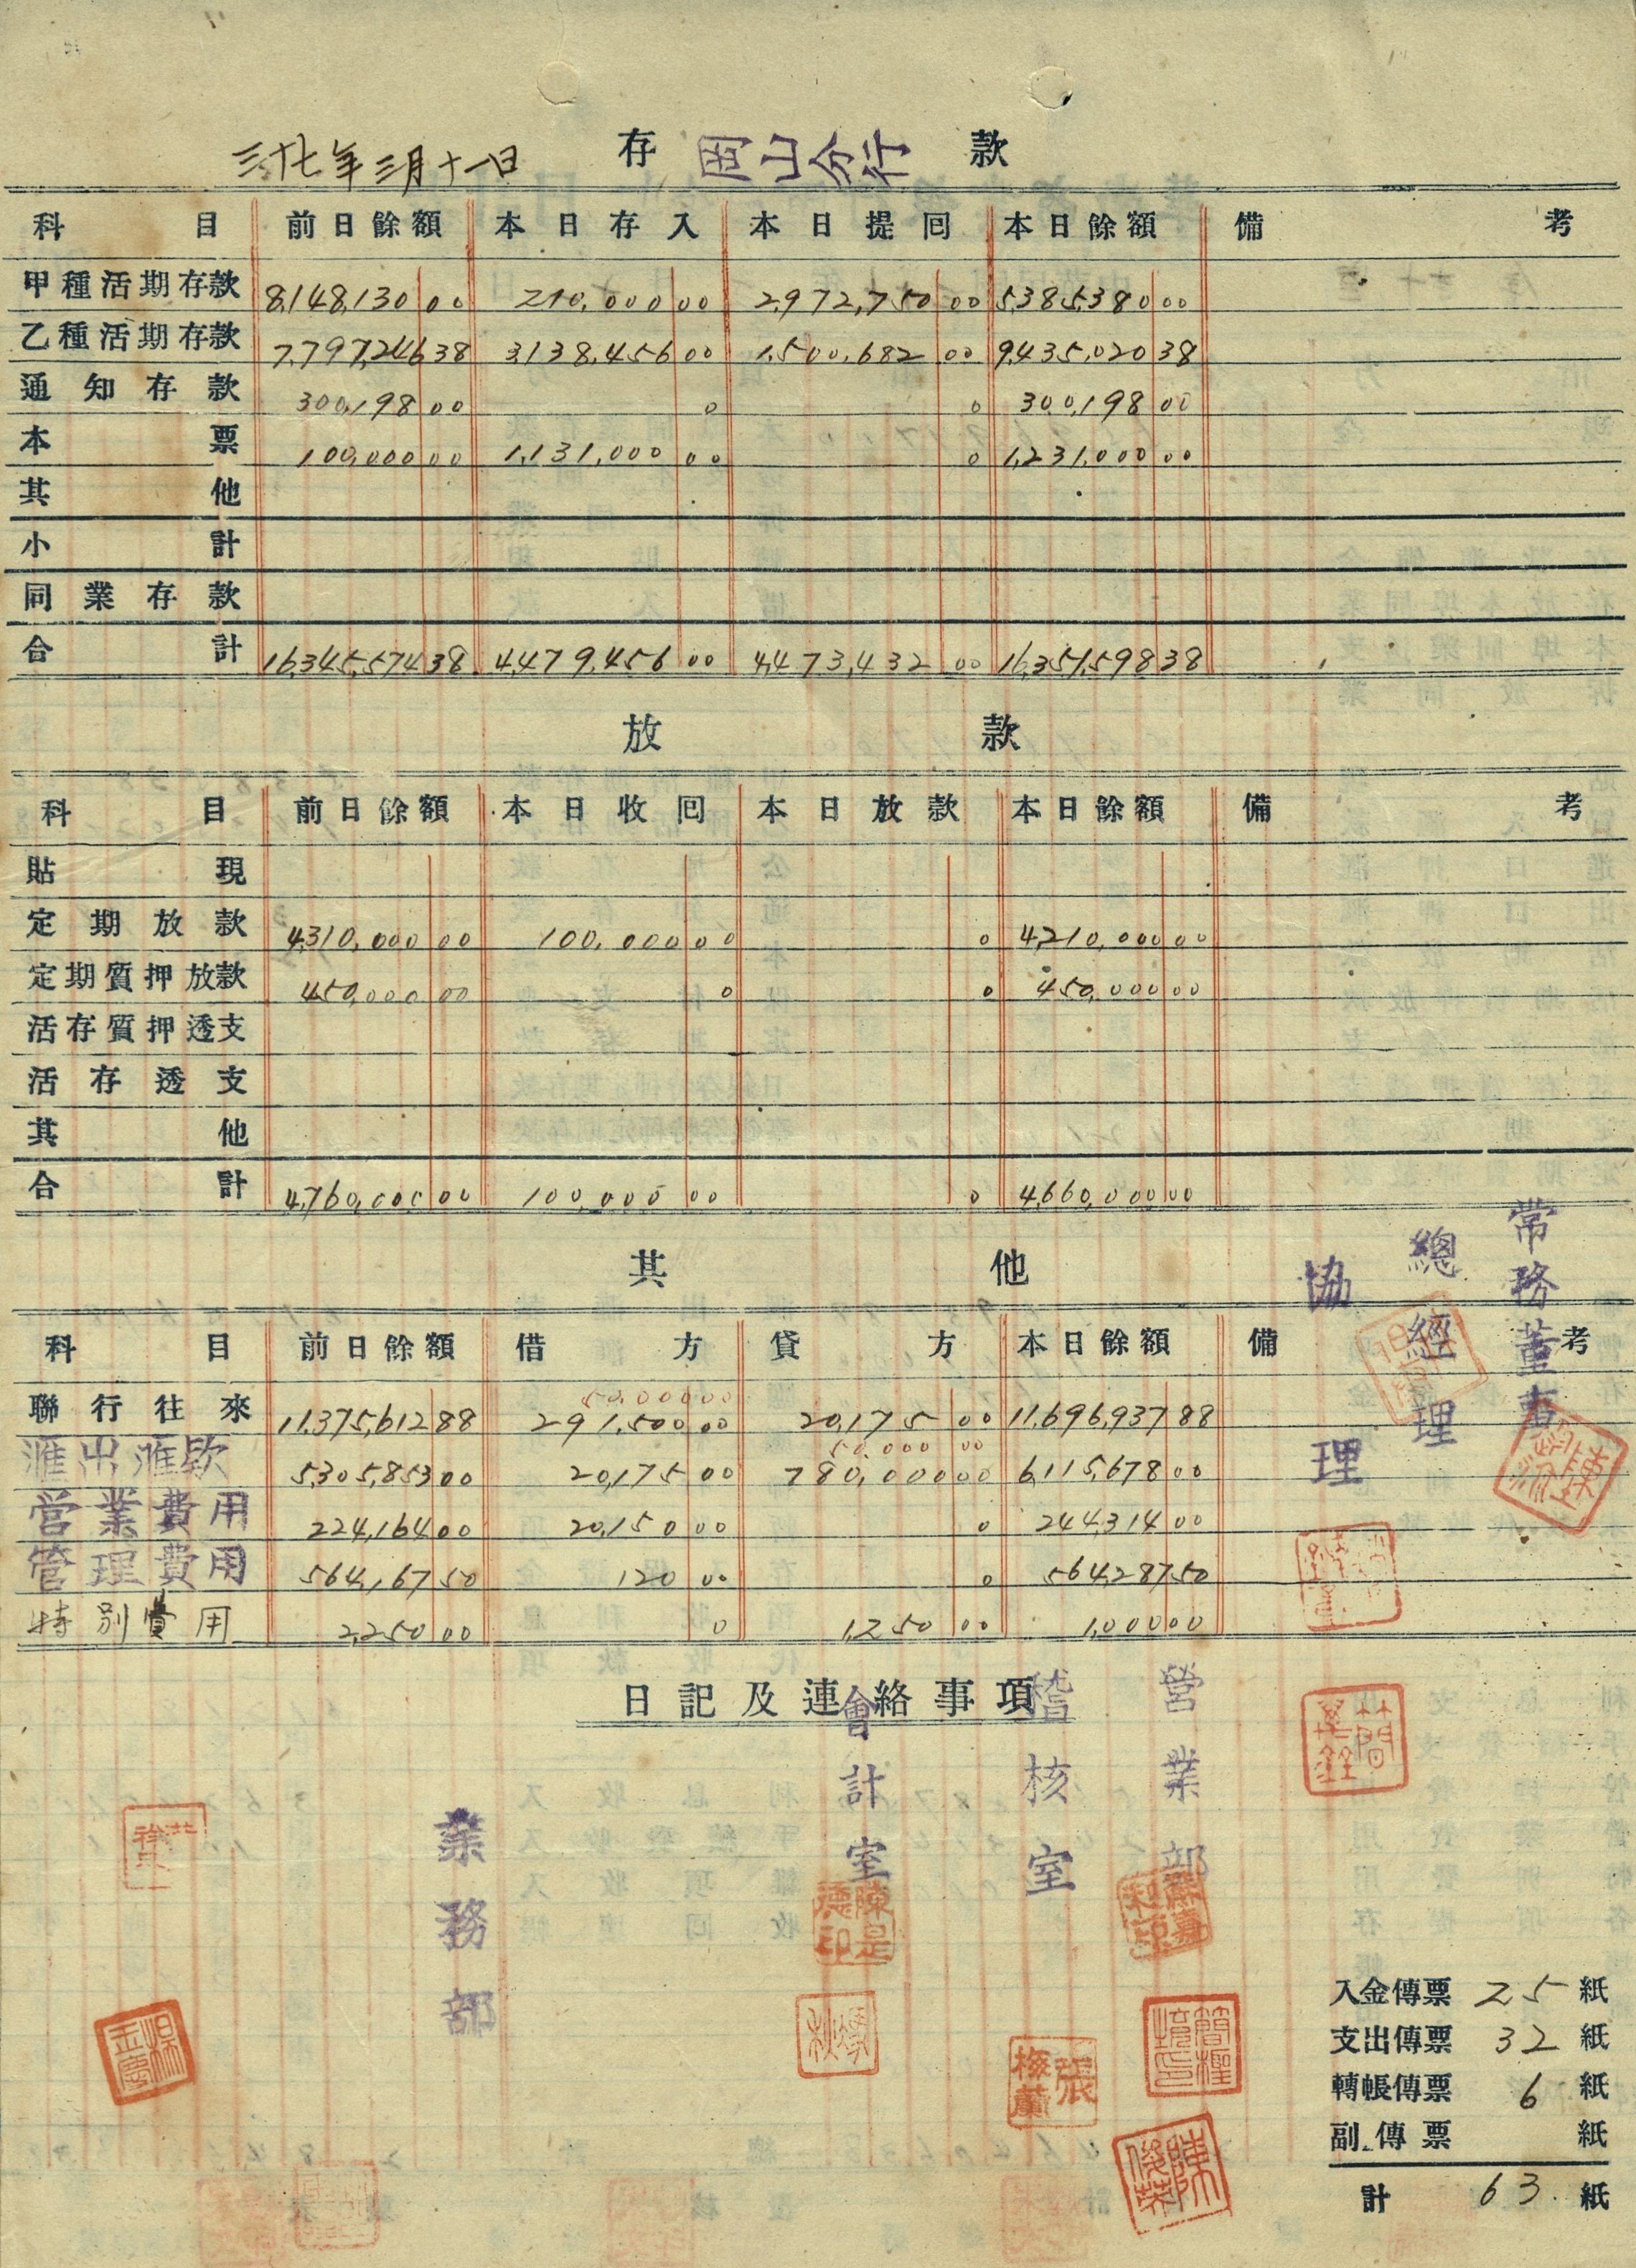 三十七年三月十一日 存 岡山分行 款
科目 前日餘額 本日存入 本日提囘 本日餘額 備考
甲種活期存款 8,148,130 00 210,000 00 2,972,750 00 5,385,380 00
乙種活期存款 7,797,246 38 3,138,456 00 1,500,682 00 9,435,020 38
通知存款 300,198 00 0 0 300,198 00
本票 100,000 00 1,131,000 00 0 1,231,000 00
其他
小計
同業存款
合計 16,345,574 38 4,479,456 00 4,473,432 00 16,351,598 38
放款
科目 前日餘額 本日收囘 本日放款 本日餘額 備考
貼現
定期放款 4,310,000 00 100,000 00 0 4,210,000 00
定期質押放款 450,000 00 0 0 450,000 00
活存質押透支
活存透支
其他
合計 4,760,000 00 100,000 00 0 4,660,000 00
其他
常務董事
總經理
協理
科目 前日餘額 借方 貸方 本日餘額 備考
50,000 00
聯行往來 11,375,612 88 291,500 00 20,175 00 11,696,937 88
50,000 00
滙出滙欵 5,305,853 00 20,175 00 780,000 00 6,115,678 00
営業費用 224,164 00 20,150 00 0 244,314 00
管理費用 564,167 50 120 00 0 564,287 50
特別費用 2,250 00 0 1,250 00 1,000 00
日記及連絡事項
營業部
稽核室
會計室
業務部
陳是德印
張梅蘭
陳俊榮
楊玉慶
入金傳票 25 紙
支出傳票 32 紙
轉帳傳票 6 紙
副傳票 紙
計 63 紙